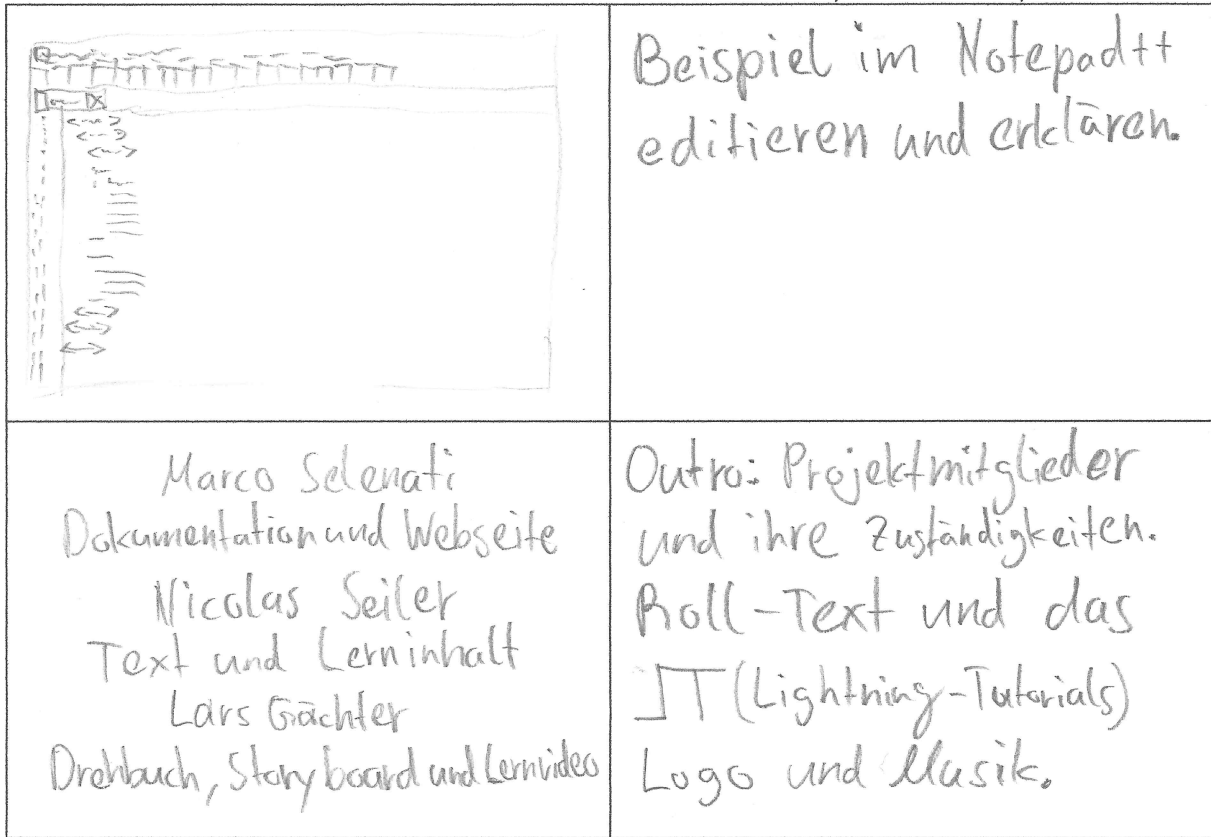 Beispiel im Notepad++
editieren und erklären.
Marco Selenati
Dokumentation und Webseite
Nicolas Seiler
Text und Lerninhalt
Lars Gächter
Drehbuch, Storyboard und Lernvideo
Outro: Projektmitglieder
und ihre Zuständigkeiten.
Roll-Text und das
LT (Lightning-Tutorials)
Logo und Musik.